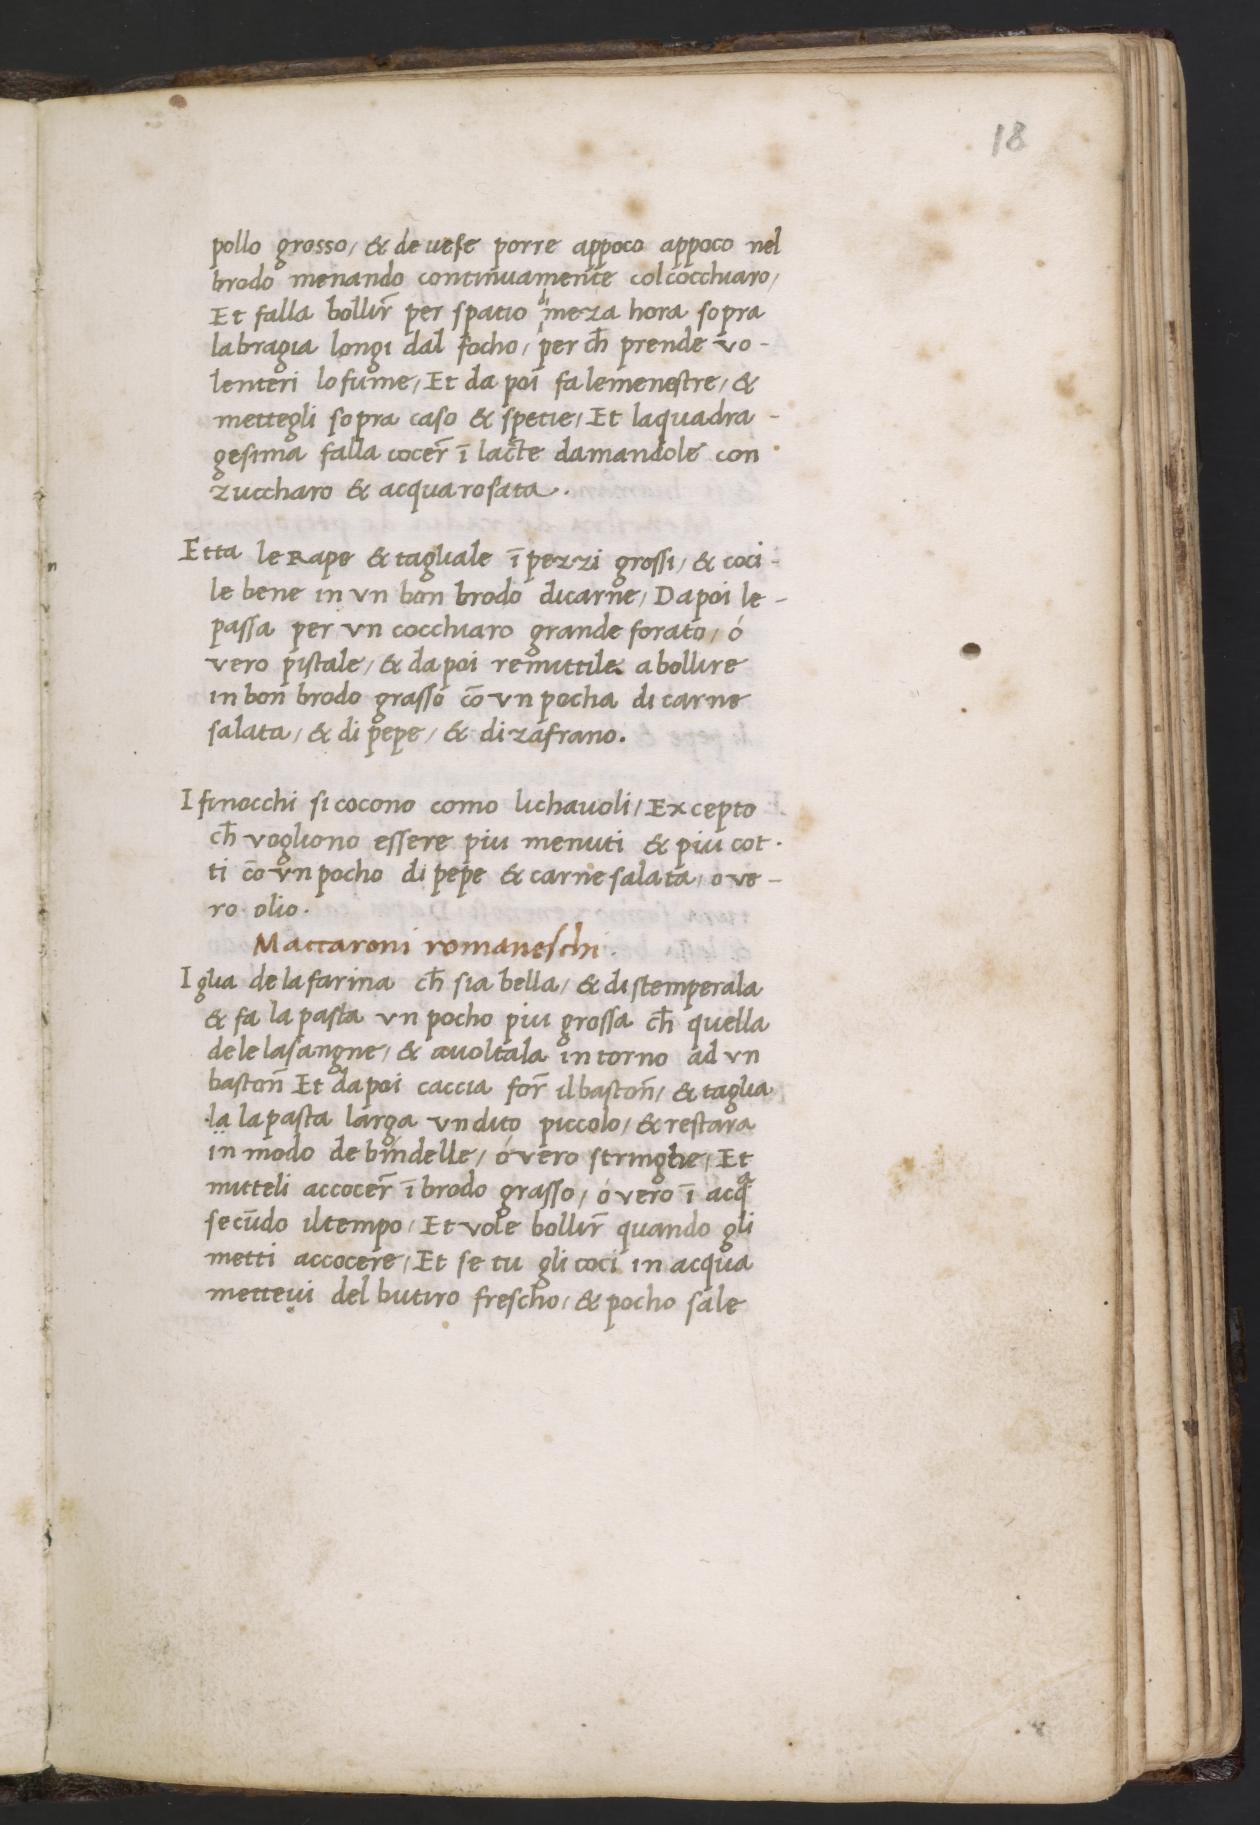 18
pollo grosso, & de uese porre appoco appoco nel
brodo menando continuamente col cocchiaro,
Et falla bollir̃ per spatio di meza hora sopra
la bragia longi dal focho, per ch̃ prende vo-
lenteri lo fume, Et da poi fa le menestre, &
mettegli sopra caso & spetie, Et la quadra-
gesima falla cocer̃ ĩ lacte damandole con
zuccharo & acqua rosata.
Etta le Rape & tagliale ĩ pezzi grossi, & coci-
le bene in vn bon brodo di carne, Da poi le-
passa per vn cocchiaro grande forato, ó
vero pistale, & da poi remittile a bollire
in bon brodo grasso cõ vn pocha di carne
salata, & di pepe, & di zafrano.
I finocchi si cocono como li chauoli, Excepto
ch̃ vogliono essere piu menuti & piu cot-
ti cõ vn pocho di pepe & carne salata, o ve-
ro olio.
Maccaroni romaneschi.
Iglia de la farina ch̃ sia bella, & distemperala
& fa la pasta vn pocho piu grossa ch̃ quella
de le lasangne, & auoltala intorno ad vn
baston̄ Et da poi caccia for̃ il baston̄, & taglia
la la pasta larga vn dito piccolo, & restara
in modo de bindelle, ó vero stringhe, Et
mitteli accocer̃ ĩ brodo grasso, ó vero ĩ acqa
secũdo il tempo, Et vole bollir̃ quando gli
metti accocere, Et se tu gli coci in acqua
metteui del butiro frescho, & pocho sale